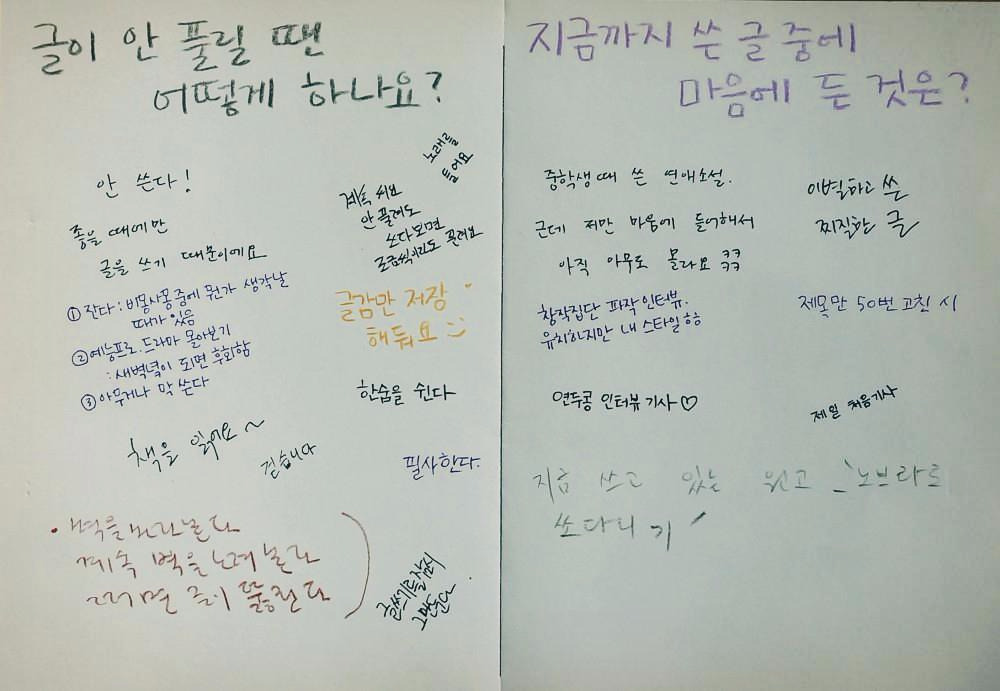 글이 안 풀릴 땐
어떻게 하나요?
노래를
틀어요
안 쓴다!
계속 써요
안 풀려도
쓰다보면
조금씩이라도 풀려요
좋을 때에만
글을 쓰기 때문이에요
① 잔다 : 비몽사몽 중에 뭔가 생각날
때가 있음
② 예능프로, 드라마 몰아보기
: 새벽녘이 되면 후회함
③ 아무거나 막 쓴다
글감만 저장
해둬요
한숨을 쉰다
책을 읽어요~
걷습니다
필사한다.
벽을 바라본다
계속 벽을 노려본다
그러면 글이 뚫린다
글쓰기를 잠시
그만둔다
지금까지 쓴 글 중에
마음에 든 것은?
중학생 때 쓴 연애소설.
근데 저만 마음에 들어해서
아직 아무도 몰라요 ㅋㅋ
ㅋㅋ
이별하고 쓴
찌질한 글
창작집단 파작 인터뷰.
유치하지만 내 스타일 ㅎㅎ
제목만 50번 고친 시
연두콩 인터뷰 기사♡
제일 처음 기사
지금 쓰고 있는 원고 - '노브라로
쏘다니기'